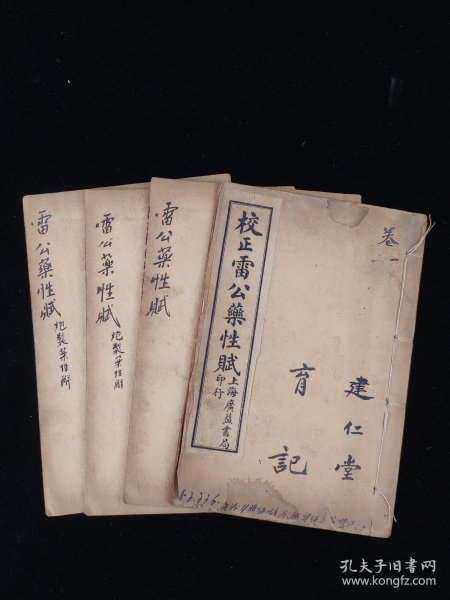 卷一
建仁堂
育記
校正雷公藥性賦
上海廣益書局
印行
雷公藥性賦
雷公藥性賦
炮製藥性解
雷公藥性賦
炮製藥性解
孔夫子旧书网
www.kongfz.com